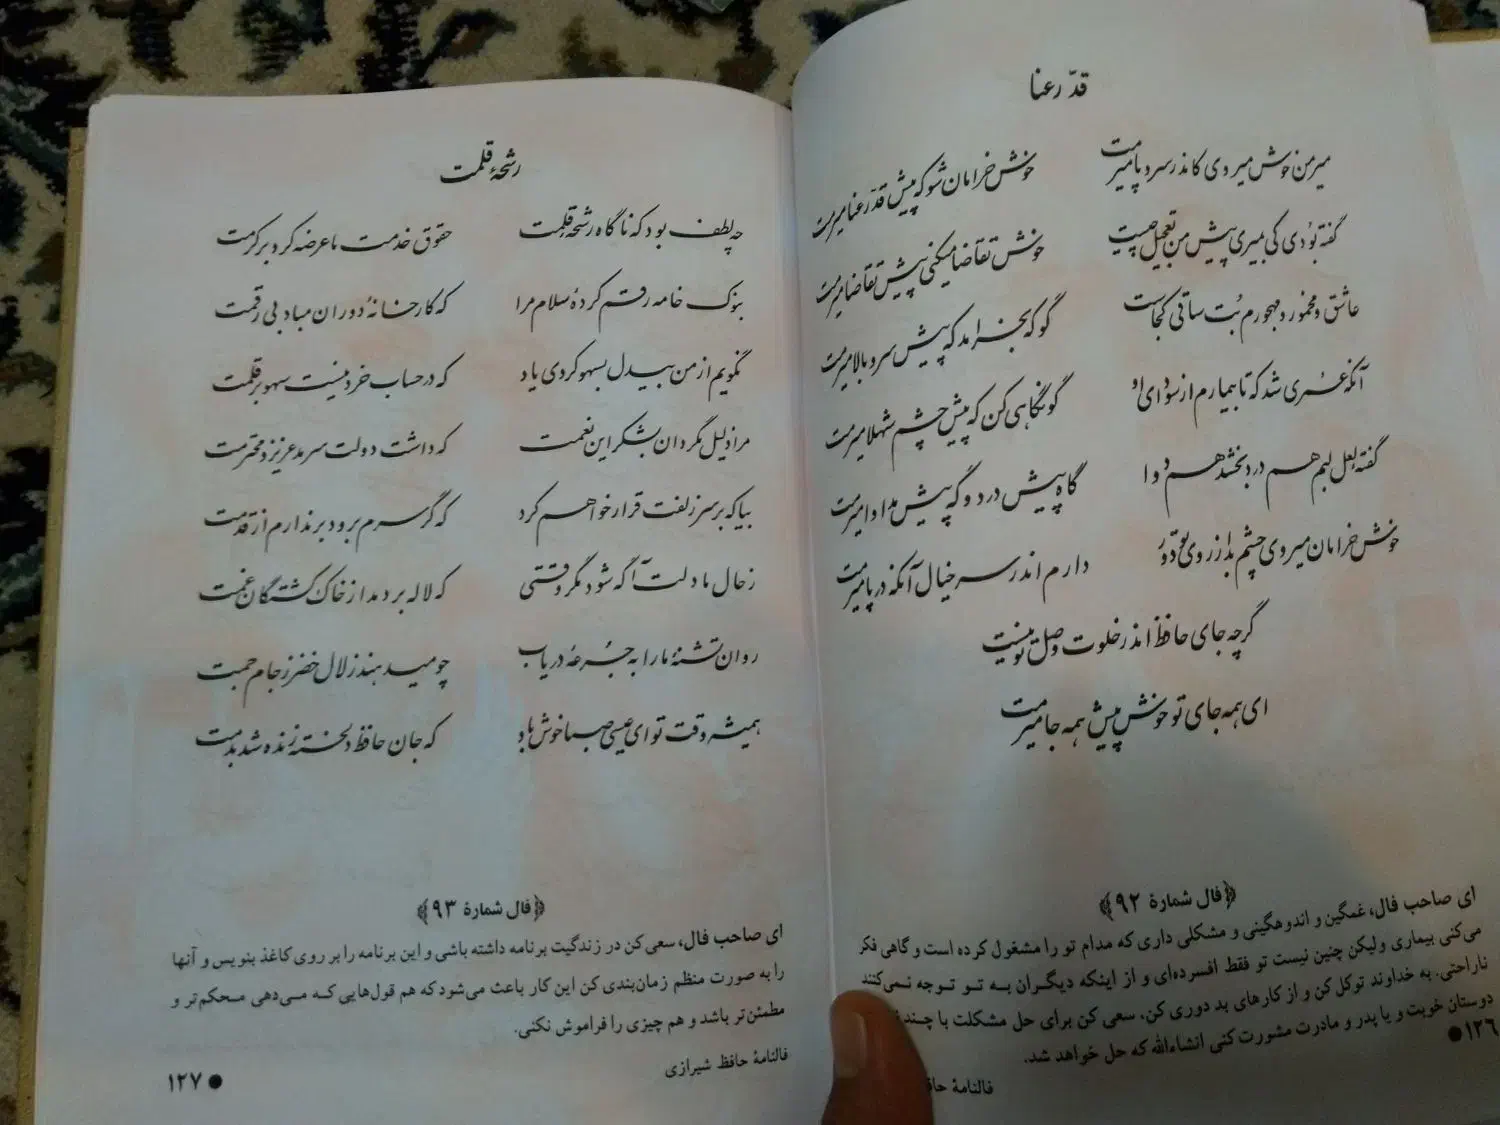 قدّ رعنا
میر من خوش میروی کاندر سر و پا میرمت
خوش خرامان شو که پیش قدّ رعنا میرمت
گفته بودی کی بمیری پیش من تعجیل چیست
خوش تقاضا میکنی پیش تقاضا میرمت
عاشق و مخمور و مهجورم بُت ساقی کجاست
گو که بخرامد که پیش سرو بالا میرمت
آنکه عمری شد که تا بیمارم از سودای او
گو نگاهی کن که پیش چشم شهلا میرمت
گفته لعل لبم هم درد بخشد هم دوا
گاه پیش درد و گه پیش مداوا میرمت
خوش خرامان میروی چشم بد از روی تو دور
دارم اندر سر خیال آنکه در پا میرمت
گرچه جای حافظ اندر خلوت وصل تو نیست
ای همه جای تو خوش پیش همه جا میرمت
﴿فال شمارهٔ ۹۲﴾
ای صاحب فال، غمگین و اندوهگینی و مشکلی داری که مدام تو را مشغول کرده است و گاهی فکر
می‌کنی بیماری ولیکن چنین نیست تو فقط افسرده‌ای و از اینکه دیگران به تو توجه نمی‌کنند
ناراحتی. به خداوند توکل کن و از کارهای بد دوری کن، سعی کن برای حل مشکلت با چند
دوستان خوبت و یا پدر و مادرت مشورت کنی انشاءالله که حل خواهد شد.
۱۲۶ ●
فالنامهٔ
رشحهٔ قلمت
چه لطف بود که ناگاه رشحهٔ قلمت
حقوق خدمت ما عرضه کرد بر کرمت
بنوک خامه رقم کردهٔ سلام مرا
که کارخانهٔ دوران مباد بی رقمت
نگویم از من بیدل بسهو کردی یاد
که در حساب خرد نیست سهو بر قلمت
مرا ذلیل مگردان بشکر این نعمت
که داشت دولت سرمد عزیز و محترمت
بیا که بر سر زلفت قرار خواهم کرد
که گر سرم برود بر ندارم از قدمت
ز حال ما دلت آگه شود مگر وقتی
که لاله بر دمد از خاک کشتگان غمت
روان تشنهٔ ما را به جرعهٔ دریاب
چو میدهند زلال خضر ز جام جمت
همیشه وقت تو ای عیسی صبا خوش باد
که جان حافظ دلخسته زنده شد بدمت
﴿فال شمارهٔ ۹۳﴾
ای صاحب فال، سعی کن در زندگیت برنامه داشته باشی و این برنامه را بر روی کاغذ بنویس و آنها
را به صورت منظم زمان‌بندی کن این کار باعث می‌شود که هم قول‌هایی که می‌دهی محکم‌تر و
مطمئن‌تر باشد و هم چیزی را فراموش نکنی.
فالنامهٔ حافظ شیرازی
۱۲۷ ●